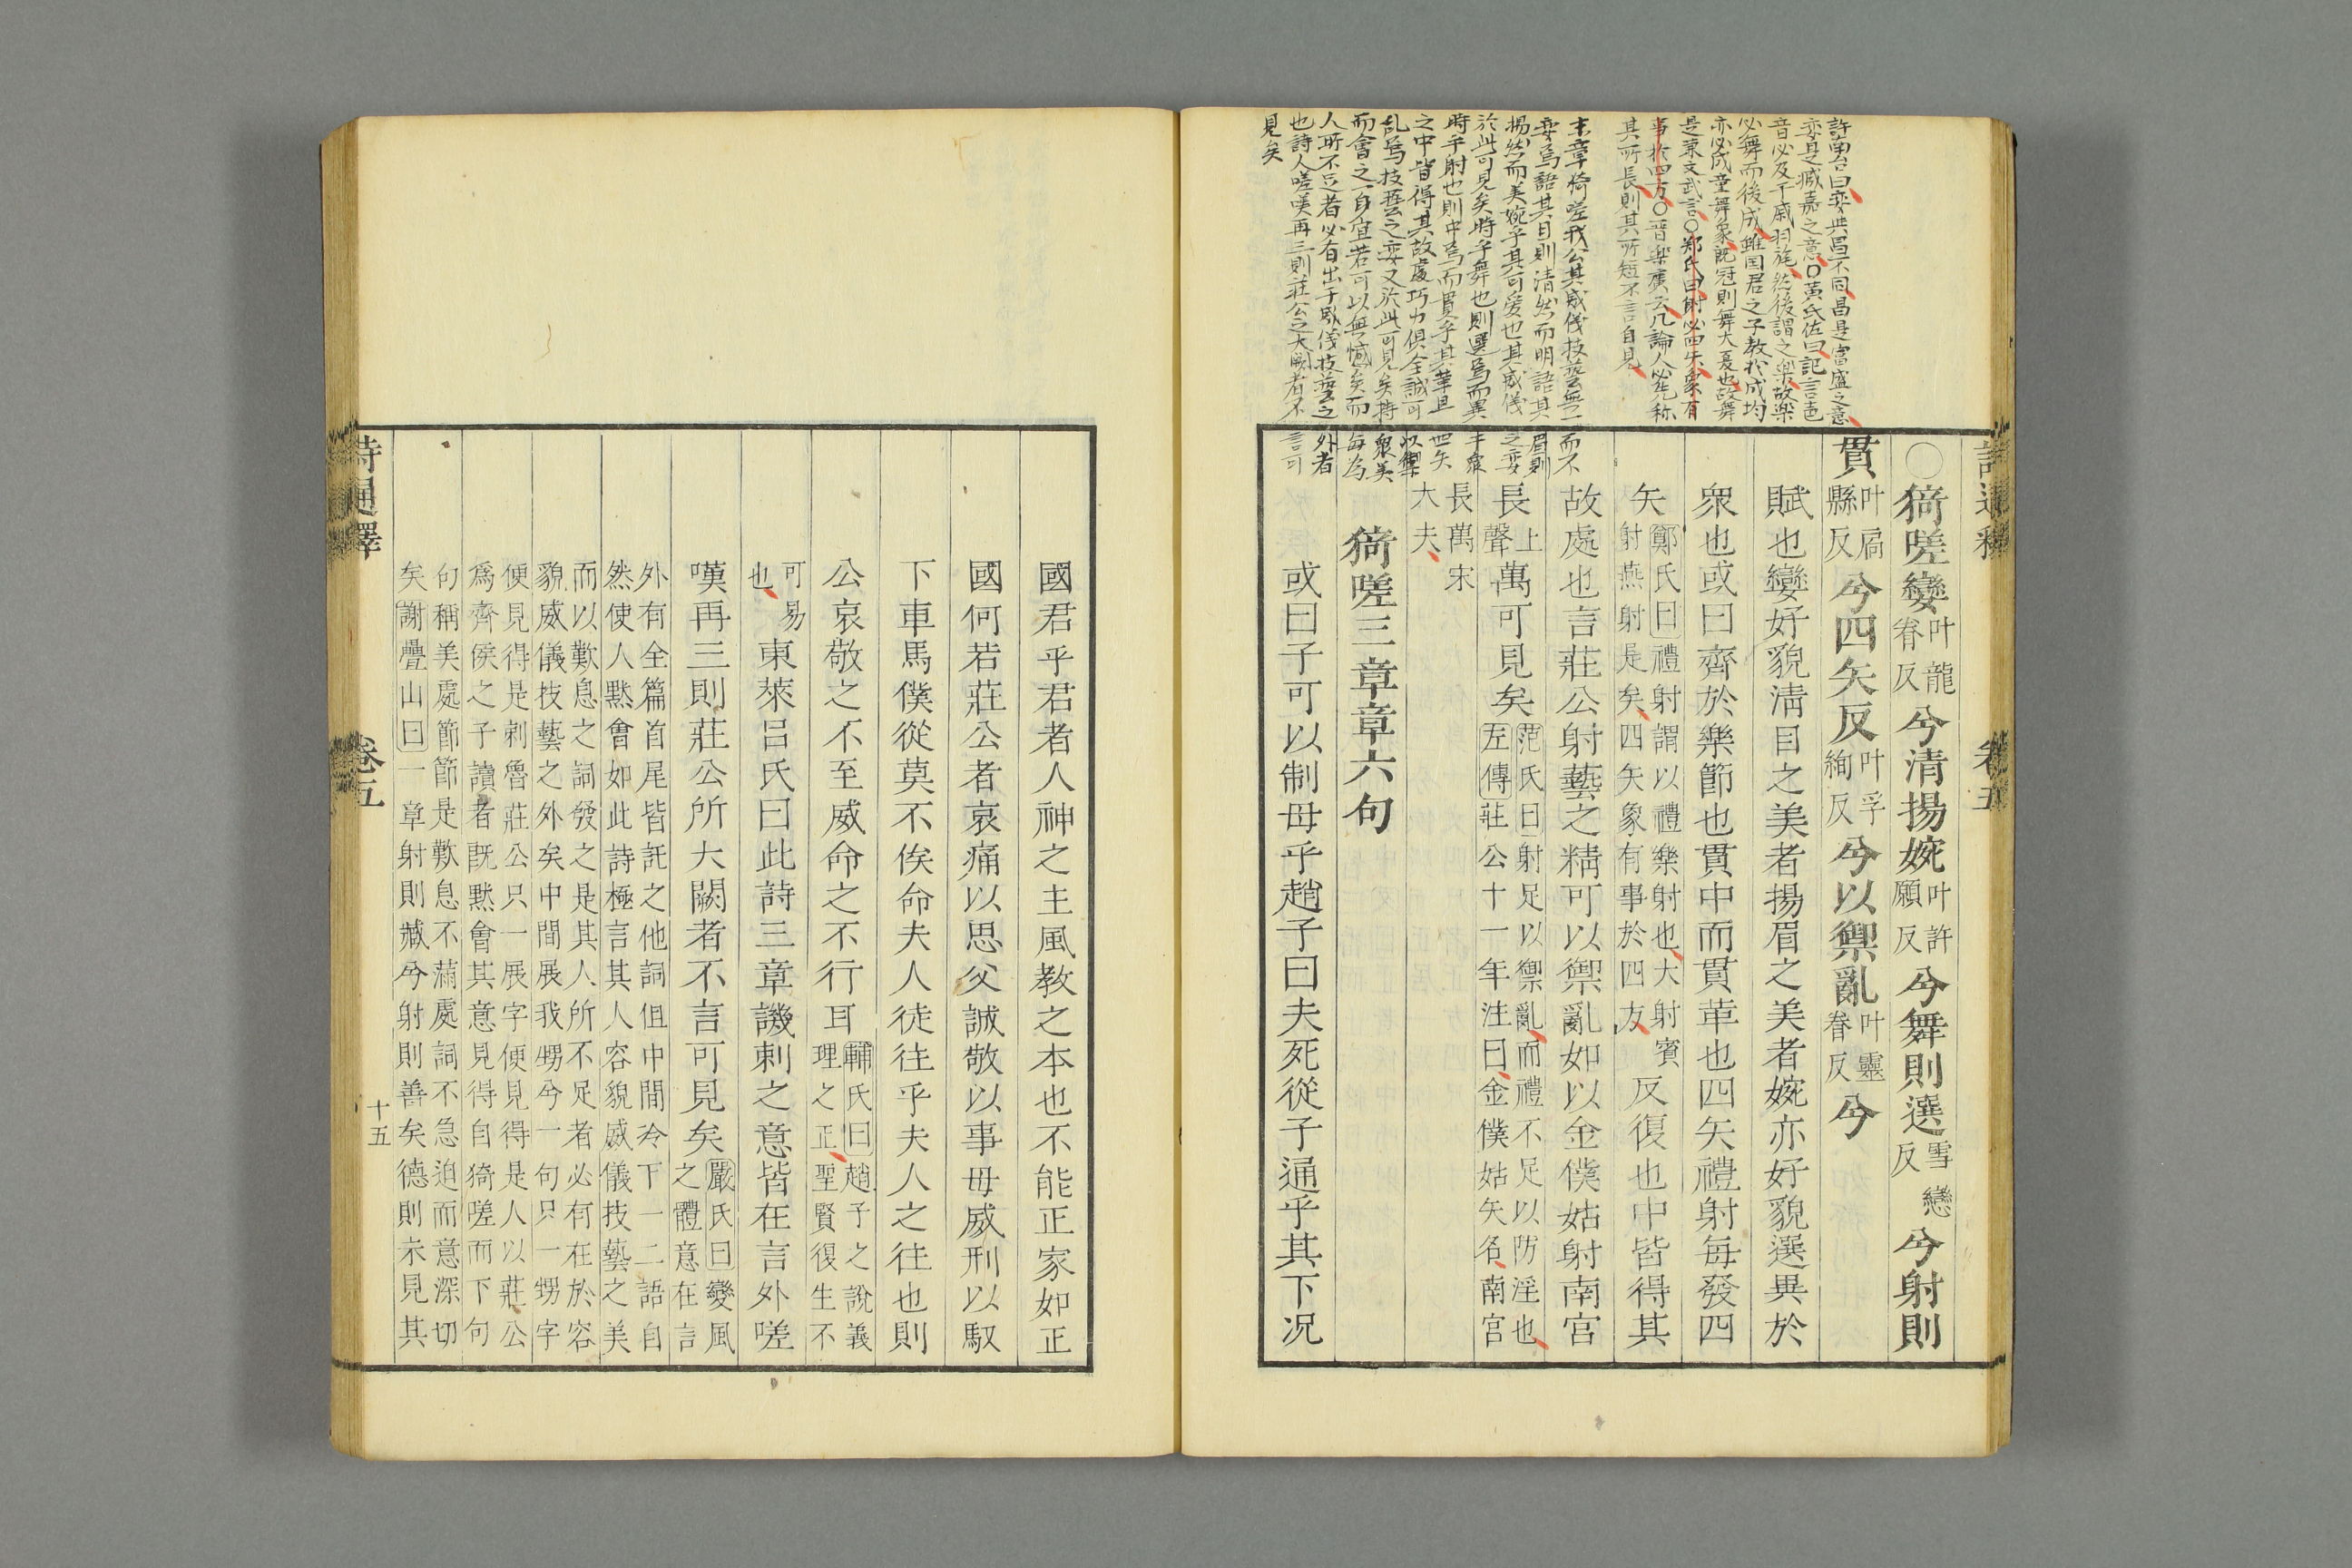 許南台曰孌與昌不同昌是富盛之意
孌是臧嘉之意○黃氏佐曰記言
音必及干戚羽旄然後謂之楽故楽
必舞而後成雖国君之子教於成均
亦必成童舞象既冠則舞大夏也故舞
是兼文武言○郑氏曰射必四矢象有
事於四方○晋楽廣云凡論人必先称
其所長則其所短不言自見
末章猗嗟我公其威儀技藝無一而不
孌焉語其目則清然而明語其眉則
揚然而美婉乎其可爱也其威儀之孌
於此可見矣時乎舞也則選焉而異于衆
時乎射也則中焉而貫乎其革且四矢
之中皆得其故處巧力俱全誠可以禦
乱焉技藝之孌又於此可見矣持衆美
而會之一身宜若可以無憾矣而每為
人所不足者必有出于威儀技藝之外者
也詩人嗟嘆再三則莊公之大闕者不言可
見矣
詩通釋 卷五
○猗嗟孌叶龍眷反兮清揚婉叶許願反兮舞則選雪戀反兮射則
貫叶扃縣反兮四矢反叶孚絢反兮以禦亂叶靈眷反兮
賦也孌好貌清目之美者揚眉之美者婉亦好貌選異於
衆也或曰齊於樂節也貫中而貫革也四矢禮射每發四
矢鄭氏曰禮射謂以禮樂射也大射賓射燕射是矣四矢象有事於四方反復也中皆得其
故處也言莊公射藝之精可以禦亂如以金僕姑射南宮
長上聲萬可見矣范氏曰射足以禦亂而禮不足以防淫也左傳莊公十一年注曰金僕姑矢名南宮
長萬宋大夫
猗嗟三章章六句
或曰子可以制母乎趙子曰夫死從子通乎其下况
國君乎君者人神之主風教之本也不能正家如正
國何若莊公者哀痛以思父誠敬以事母威刑以馭
下車馬僕從莫不俟命夫人徒往乎夫人之往也則
公哀敬之不至威命之不行耳輔氏曰趙子之說義理之正聖賢復生不
可易也東萊呂氏曰此詩三章譏刺之意皆在言外嗟
嘆再三則莊公所大闕者不言可見矣嚴氏曰變風之體意在言
外有全篇首尾皆託之他詞但中間冷下一二語自
然使人黙會如此詩極言其人容貌威儀技藝之美
而以歎息之詞發之是其人所不足者必有在於容
貌威儀技藝之外矣中間展我甥兮一句只一甥字
便見得是刺魯莊公只一展字便見得是人以莊公
爲齊侯之子讀者既黙會其意見得自猗嗟而下句
句稱美處節節是歎息不滿處詞不急迫而意深切
矣謝疊山曰一章射則臧兮射則善矣德則未見其
詩通釋 卷五 十五